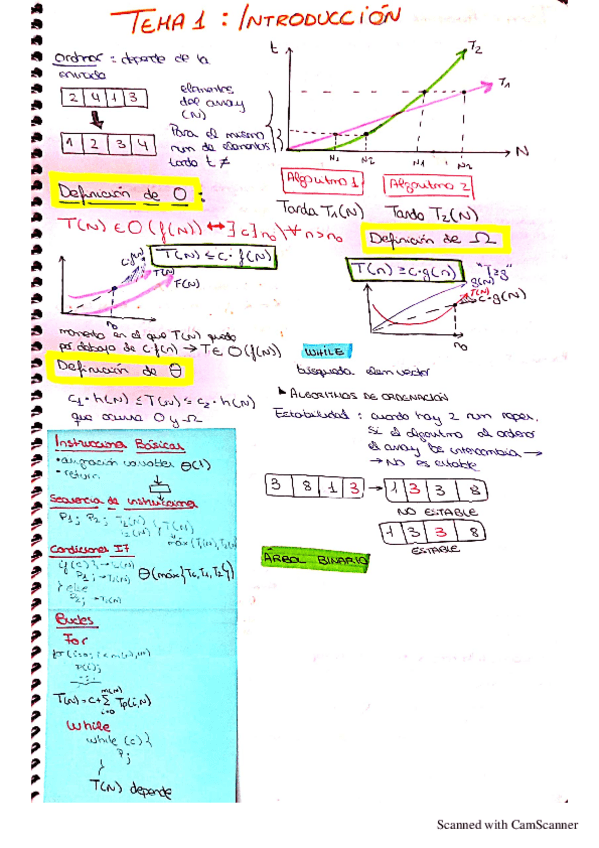 TEMA 1: INTRODUCCIÓN
ordenar: depende de la
entrada
2 4 1 3
1 2 3 4
elementos
del array
(N)
Para el mismo
num de elementos
tarda t ≠
t
T2
T1
N1 N2 N1 N2 N
Algoritmo 1
Algoritmo 2
Tarda T1(N)
Tarda T2(N)
Definición de O:
T(N) ∈ O(f(N)) ↔ ∃ c, ∃ n0 \ ∀ n > n0
T(N) ≤ c·f(N)
c·f(N)
T(N)
F(N)
n0
momento en el que T(N) queda
por debajo de c·f(n) → T ∈ O(f(N))
Definición de Ω
T(n) ≥ c·g(n)
g(N)
T(N)
c·g(N)
n0
Definición de Θ
c1·h(N) ≤ T(N) ≤ c2·h(N)
que ocurra O y Ω
WHILE
busqueda elem vector
ALGORITMOS DE ORDENACIÓN
Estabilidad: cuando hay 2 num repes.
Si el algoritmo al ordenar
el array los intercambia →
→ No es estable
3 8 1 3 → 1 3 3 8
NO ESTABLE
1 3 3 8
ESTABLE
ÁRBOL BINARIO
Instrucciones Básicas
• asignación variables Θ(1)
• return
Secuencia de instrucciones
P1; P2; T1(N)
T2(N) } T(N)
máx{T1(N), T2(N)}
Condiciones If
if (c) { → Tc(N)
P1; → T1(N)
} else
P2; → T2(N)
Θ(máx{Tc, T1, T2})
Bucles
For
P(i);
T(N) = c + Σ Tp(i,N)
m(N)
i=0
While
while (c) {
P;
}
T(N) depende
Scanned with CamScanner